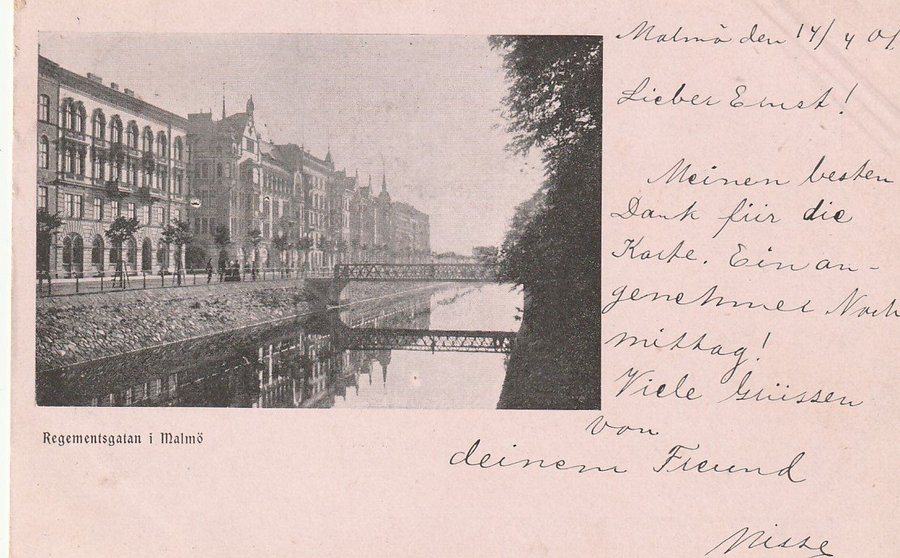 Malmö den 14/4 01
Lieber Ernst!
Meinen besten
Dank für die
Karte. Ein an-
genehmer Nach
mittag!
Viele Grüssen
von
deinem Freund
Nisse
Regementsgatan i Malmö